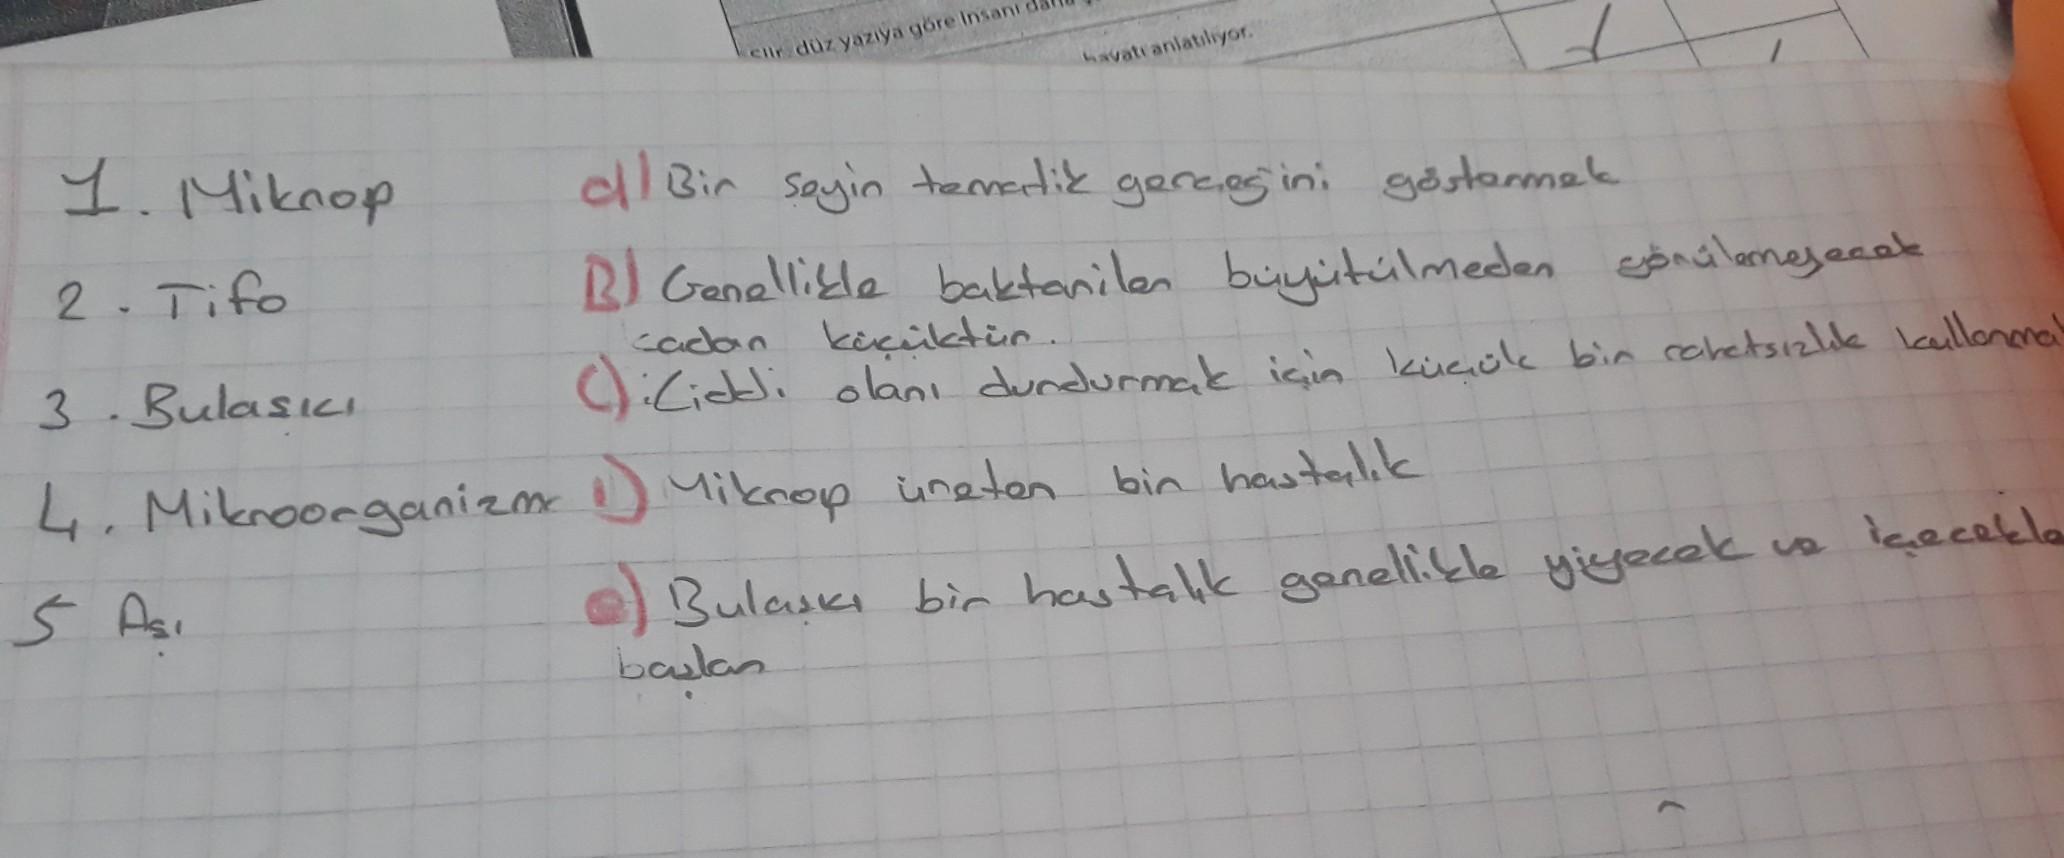 şiir düz yazıya göre insanı daha
hayatı anlatılıyor.
1. Mikrop
a) Bir şeyin temerlik gerceğini göstermek
2. Tifo
B) Genellikle bakteriler büyütülmeden görülemeyecek
kadar küçüktür.
3. Bulaşıcı
C) Ciddi olanı durdurmak için küçük bir rahatsızlık kullanma
4. Mikroorganizm
D) Mikrop üreten bir hastalık
5 Aşı
e) Bulaşıcı bir hastalık genellikle yiyecek ve içecekle
başlar